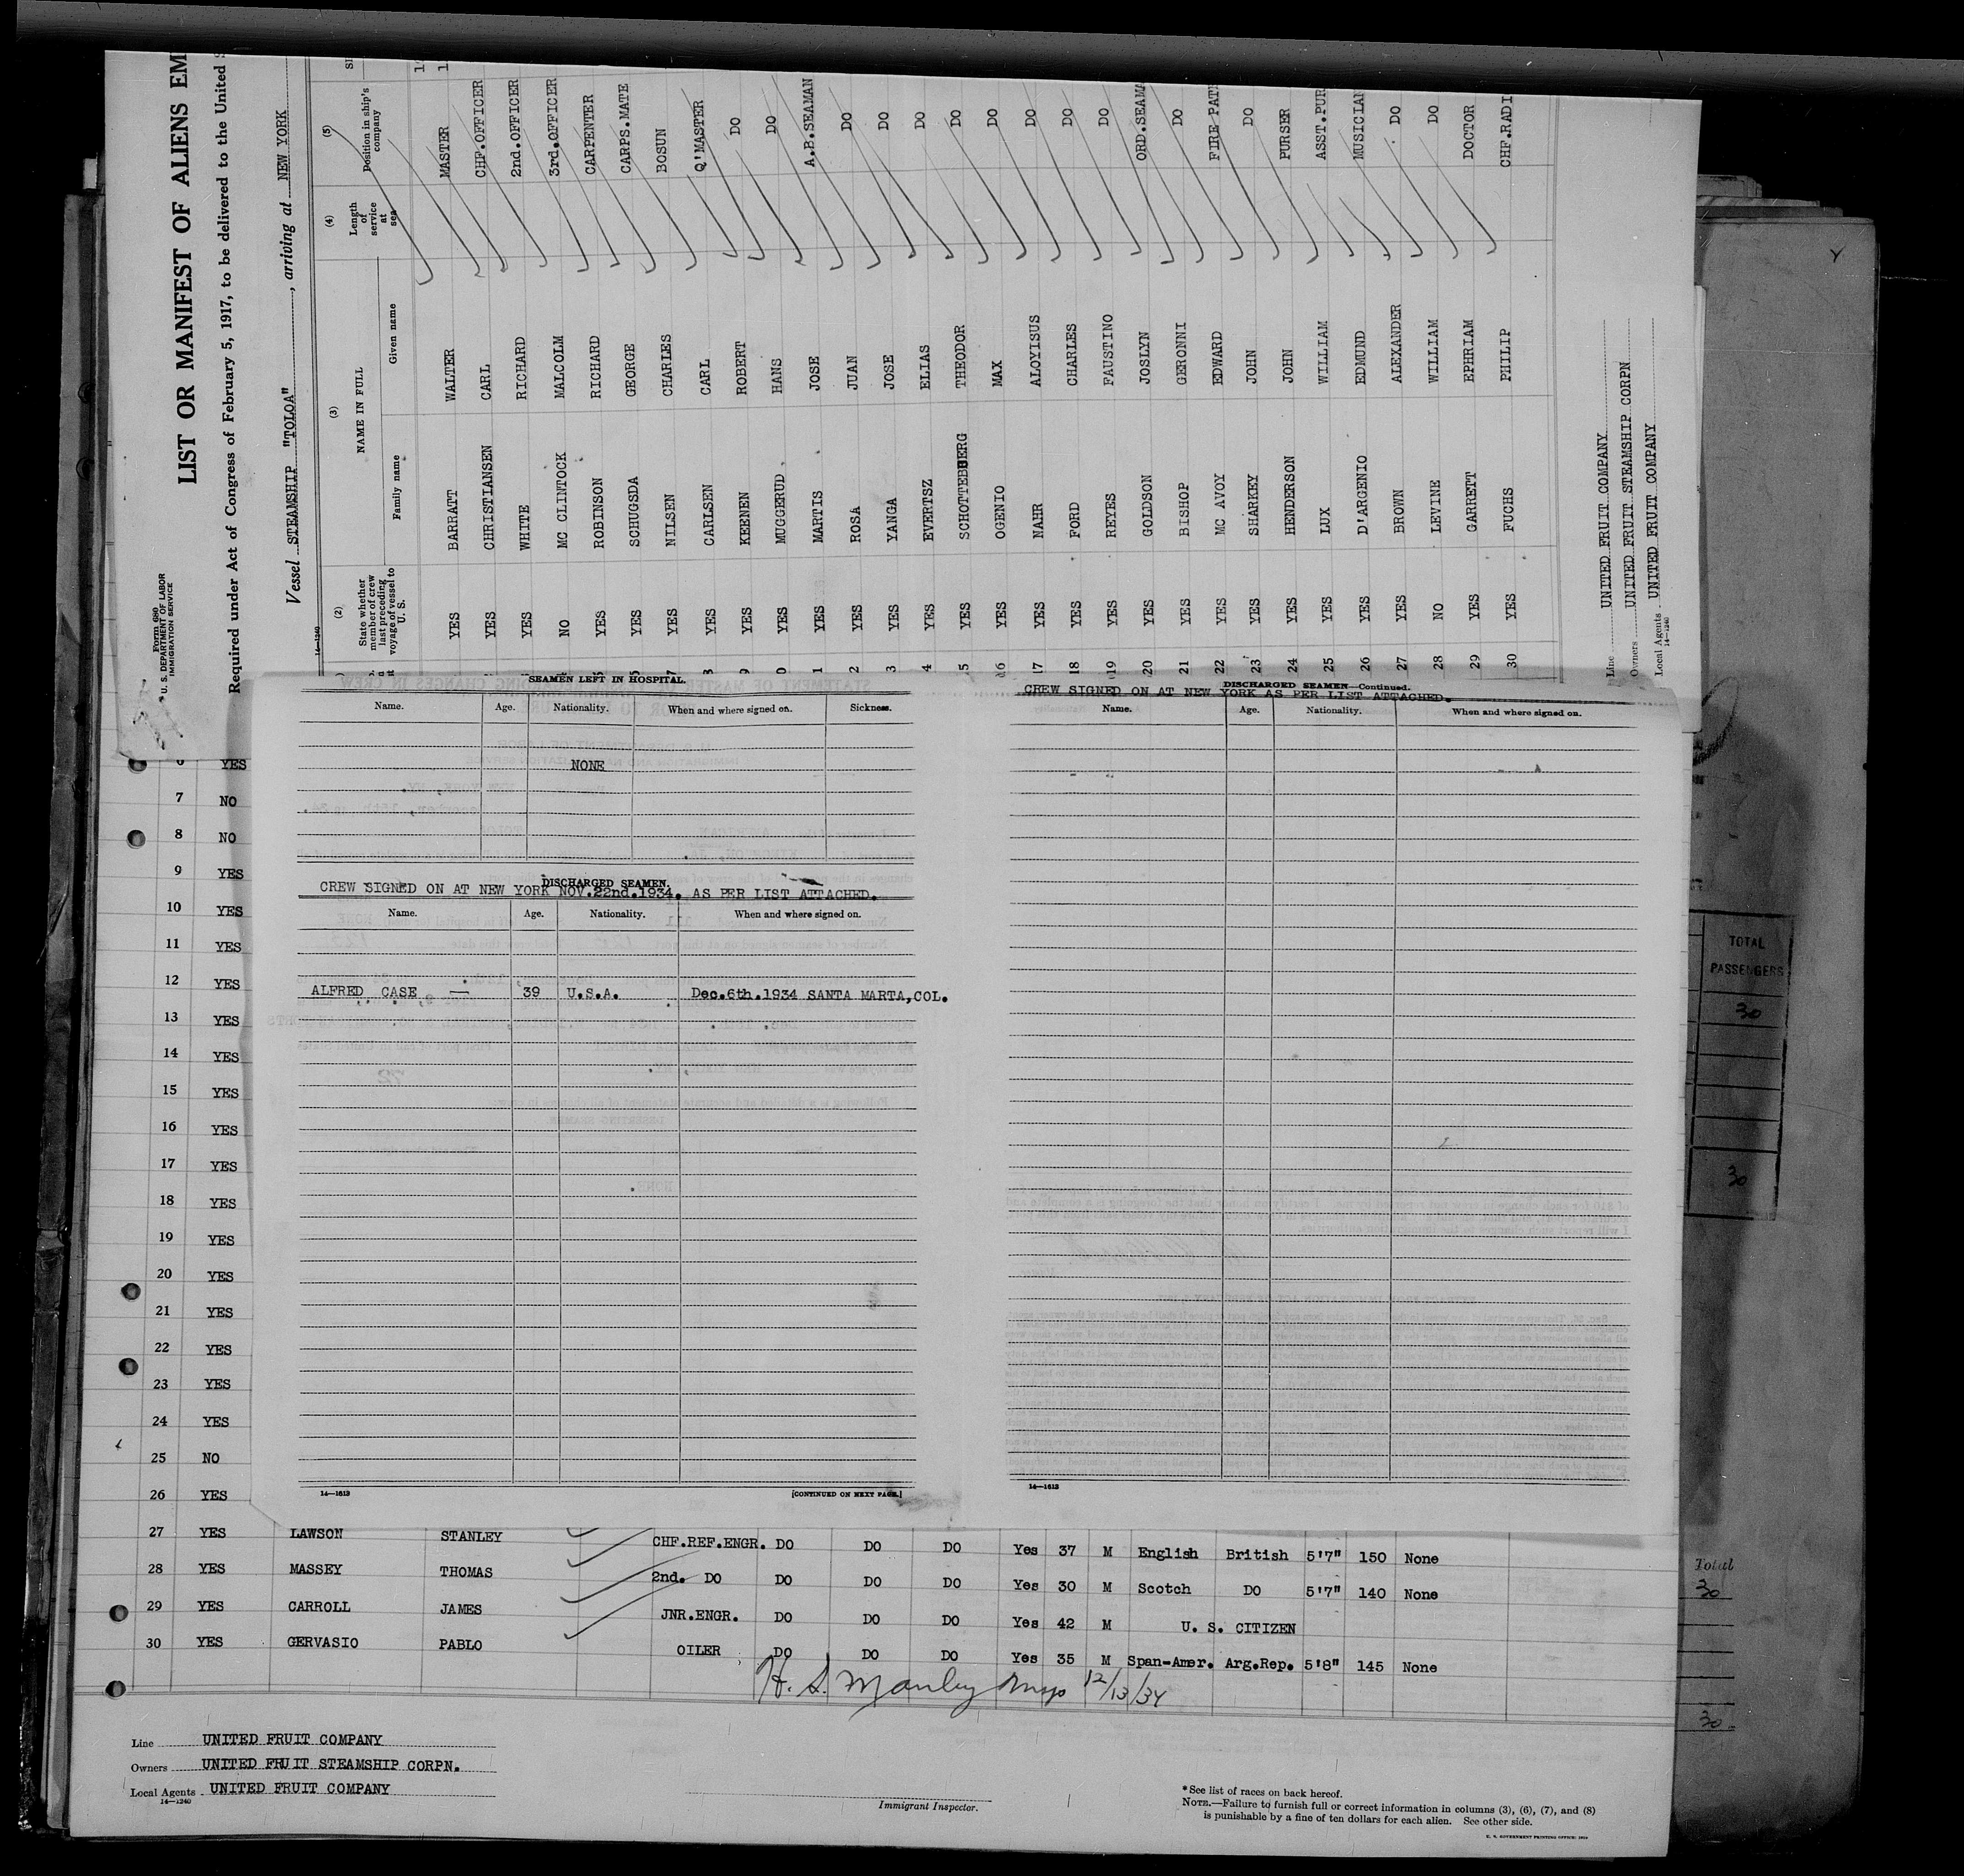 LIST OR MANIFEST OF ALIENS EM
Required under Act of Congress of February 5, 1917, to be delivered to the United S
Vessel STEAMSHIP "TOLOA", arriving at NEW YORK
Form 680
U. S. DEPARTMENT OF LABOR
IMMIGRATION SERVICE
14—1240
(2) (3) (4) (5)
State whether member of crew last preceding voyage of vessel to U. S.
NAME IN FULL
Family name Given name
Length of service at sea
Position in ship's company
YES BARRATT WALTER MASTER
YES CHRISTIANSEN CARL CHF.OFFICER
YES WHITE RICHARD 2nd.OFFICER
NO MC CLINTOCK MALCOLM 3rd.OFFICER
YES ROBINSON RICHARD CARPENTER
YES SCHUGSDA GEORGE CARPS.MATE
YES NILSEN CHARLES BOSUN
YES CARLSEN CARL Q'MASTER
9 YES KEENEN ROBERT DO
0 YES MUGGERUD HANS DO
1 YES MARTIS JOSE A.B.SEAMAN
2 YES ROSA JUAN DO
3 YES YANGA JOSE DO
4 YES EVERTSZ ELIAS DO
15 YES SCHOTTEBUERG THEODOR DO
16 YES OGENIO MAX DO
17 YES NAHR ALOYISUS DO
18 YES FORD CHARLES DO
19 YES REYES FAUSTINO DO
20 YES GOLDSON JOSLYN ORD.SEAMA
21 YES BISHOP GERONNI DO
22 YES MC AVOY EDWARD FIRE PAT
23 YES SHARKEY JOHN DO
24 YES HENDERSON JOHN PURSER
25 YES LUX WILLIAM ASST.PUR
26 YES D'ARGENIO EDMUND MUSICIAN
27 YES BROWN ALEXANDER DO
28 NO LEVINE WILLIAM DO
29 YES GARRETT EPHRIAM DOCTOR
30 YES FUCHS PHILIP CHF.RADI
Line UNITED FRUIT COMPANY
Owners UNITED FRUIT STEAMSHIP CORPN
Local Agents UNITED FRUIT COMPANY
14—1240
SEAMEN LEFT IN HOSPITAL.
Name. Age. Nationality. When and where signed on. Sickness.
NONE
DISCHARGED SEAMEN.
CREW SIGNED ON AT NEW YORK NOV.22nd.1934. AS PER LIST ATTACHED.
Name. Age. Nationality. When and where signed on.
ALFRED CASE — 39 U.S.A. Dec.6th.1934 SANTA MARTA,COL.
14—1613
[CONTINUED ON NEXT PAGE.]
DISCHARGED SEAMEN—Continued.
CREW SIGNED ON AT NEW YORK AS PER LIST ATTACHED.
Name. Age. Nationality. When and where signed on.
14—1613
6 YES
7 NO
8 NO
9 YES
10 YES
11 YES
12 YES
13 YES
14 YES
15 YES
16 YES
17 YES
18 YES
19 YES
20 YES
21 YES
22 YES
23 YES
24 YES
25 NO
26 YES
27 YES LAWSON STANLEY CHF.REF.ENGR. DO DO DO Yes 37 M English British 5'7" 150 None
28 YES MASSEY THOMAS 2nd. DO DO DO DO Yes 30 M Scotch DO 5'7" 140 None
29 YES CARROLL JAMES JNR.ENGR. DO DO DO Yes 42 M U. S. CITIZEN
30 YES GERVASIO PABLO OILER DO DO DO Yes 35 M Span-Amer. Arg.Rep. 5'8" 145 None
H. S. Manley 12/13/34
Line UNITED FRUIT COMPANY
Owners UNITED FRUIT STEAMSHIP CORPN.
Local Agents UNITED FRUIT COMPANY
14—1240
Immigrant Inspector.
*See list of races on back hereof.
NOTE.—Failure to furnish full or correct information in columns (3), (6), (7), and (8)
is punishable by a fine of ten dollars for each alien. See other side.
U. S. GOVERNMENT PRINTING OFFICE:
TOTAL
PASSENGERS
30
30
Total
30
30